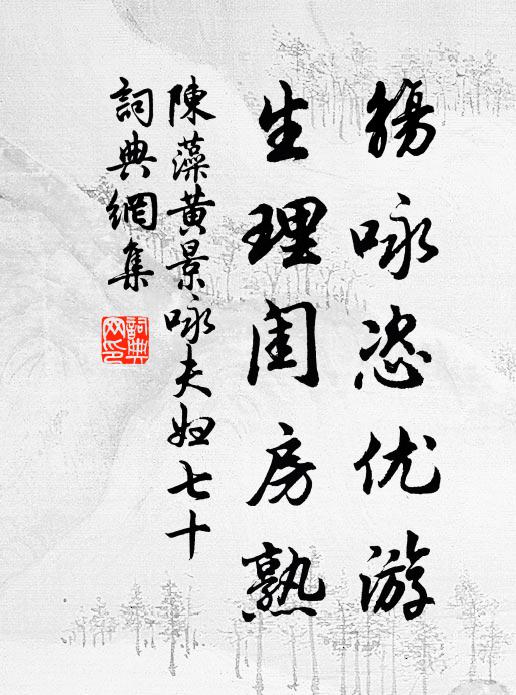 觴咏恣优游
生理闺房熟
陳藻黄景咏夫妇七十
詞典網集
詞典
网印